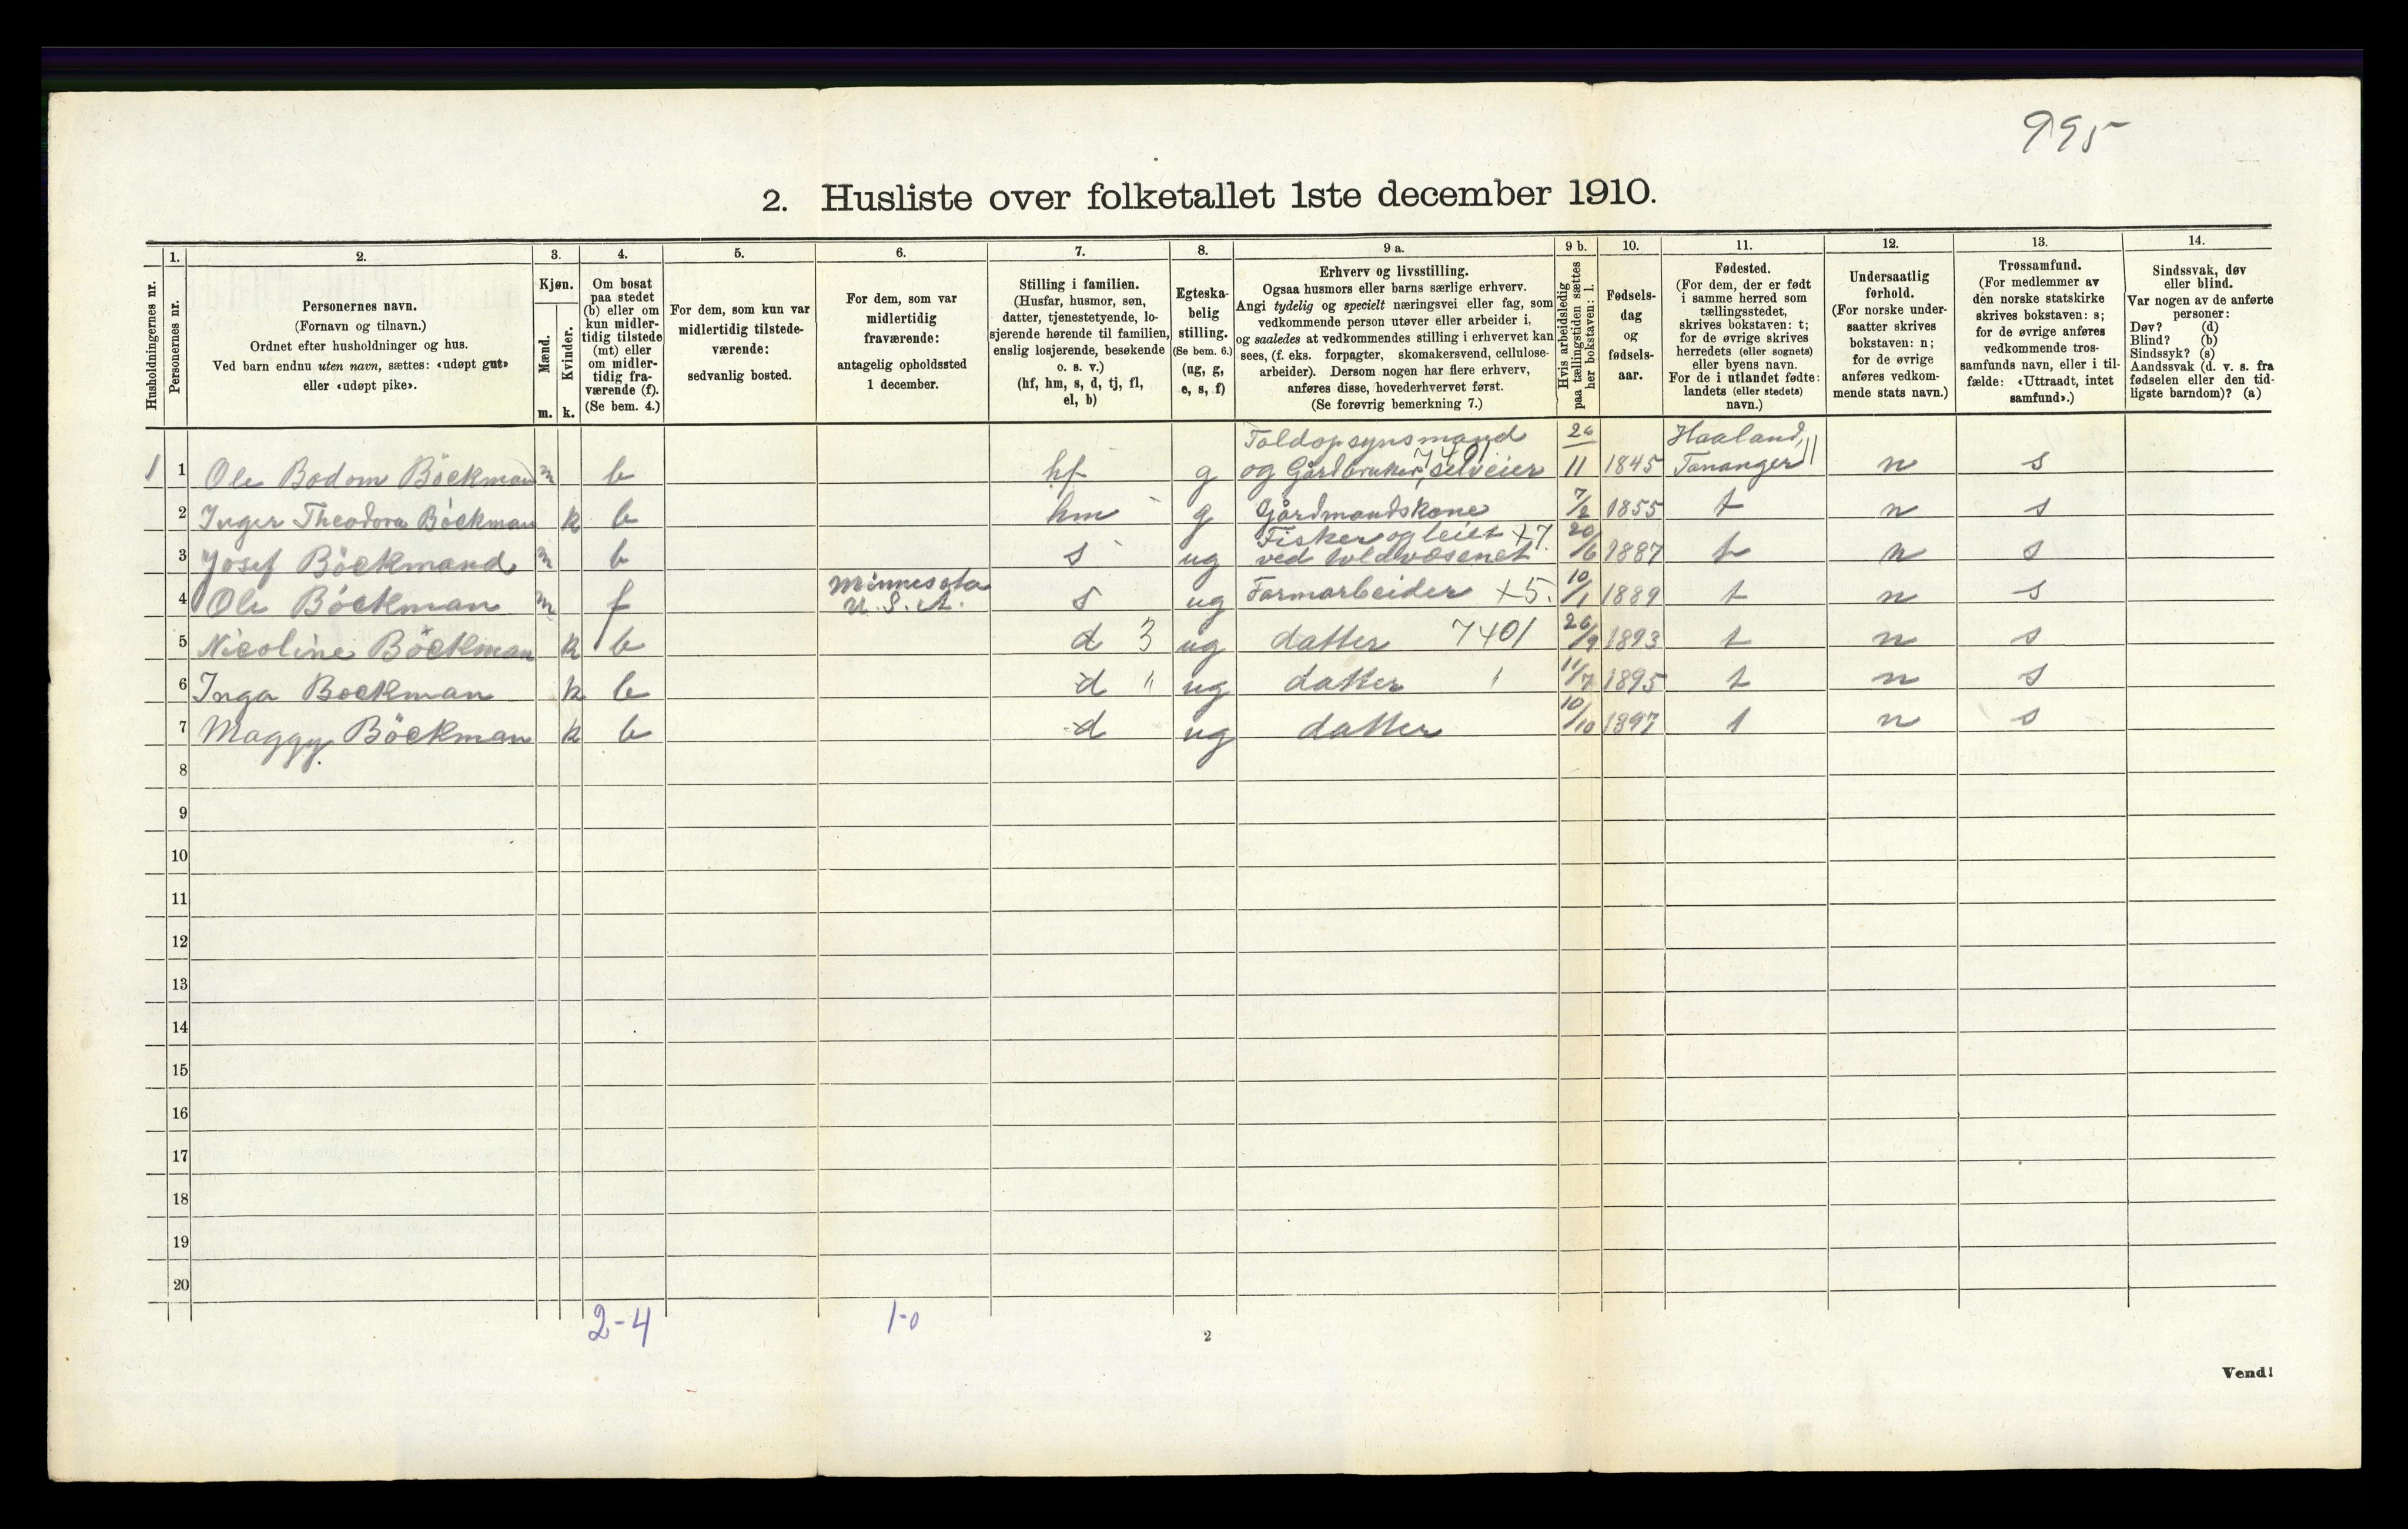 995
2. Husliste over folketallet 1ste december 1910.
Husholdningernes nr.
1.
Personernes nr.
2.
Personernes navn.
(Fornavn og tilnavn.)
Ordnet efter husholdninger og hus.
Ved barn endnu uten navn, sættes: «udøpt gut»
eller «udøpt pike».
3.
Kjøn.
Mænd.
m.
Kvinder.
k.
4.
Om bosat
paa stedet
(b) eller om
kun midler-
tidig tilstede
(mt) eller
om midler-
tidig fra-
værende (f).
(Se bem. 4.)
5.
For dem, som kun var
midlertidig tilstede-
værende:
sedvanlig bosted.
6.
For dem, som var
midlertidig
fraværende:
antagelig opholdssted
1 december.
7.
Stilling i familien.
(Husfar, husmor, søn,
datter, tjenestetyende, lo-
sjerende hørende til familien,
enslig losjerende, besøkende
o. s. v.)
(hf, hm, s, d, tj, fl,
el, b)
8.
Egteska-
belig
stilling.
(Se bem. 6.)
(ug, g,
e, s, f)
9 a.
Erhverv og livsstilling.
Ogsaa husmors eller barns særlige erhverv.
Angi tydelig og specielt næringsvei eller fag, som
vedkommende person utøver eller arbeider i,
og saaledes at vedkommendes stilling i erhvervet kan
sees, (f. eks. forpagter, skomakersvend, cellulose-
arbeider). Dersom nogen har flere erhverv,
anføres disse, hovederhvervet først.
(Se forøvrig bemerkning 7.)
9 b.
Hvis arbeidsledig
paa tællingstiden sættes
her bokstaven: l.
10.
Fødsels-
dag
og
fødsels-
aar.
11.
Fødested.
(For dem, der er født
i samme herred som
tællingsstedet,
skrives bokstaven: t;
for de øvrige skrives
herredets (eller sognets)
eller byens navn.
For de i utlandet fødte:
landets (eller stedets)
navn.)
12.
Undersaatlig
forhold.
(For norske under-
saatter skrives
bokstaven: n;
for de øvrige
anføres vedkom-
mende stats navn.)
13.
Trossamfund.
(For medlemmer av
den norske statskirke
skrives bokstaven: s;
for de øvrige anføres
vedkommende tros-
samfunds navn, eller i til-
fælde: «Uttraadt, intet
samfund».)
14.
Sindssvak, døv
eller blind.
Var nogen av de anførte
personer:
Døv? (d)
Blind? (b)
Sindssyk? (s)
Aandssvak (d. v. s. fra
fødselen eller den tid-
ligste barndom)? (a)
Toldopsynsmand 26 Haaland,
1 1 Ole Bodom Böckman m b hf g og Gårdbruker, selveier 7401 11 1845 Tananger n s
2 Inger Theodora Böckman k b hm g Gårdmandskone 7/2 1855 t n s
Fisker og leiet +7. 20
3 Josef Böckmand m b s ug ved toldvæsenet /6 1887 t n s
Minnesota
4 Ole Böckman m f U. S. A. s ug Farmarbeider +5. 10/1 1889 t n s
5 Nicoline Böckman k b d 3 ug datter 7401 26/9 1893 t n s
6 Inga Bockman k b d " ug datter 11/7 1895 t n s
7 Maggy Böckman k b d ug datter 10/10 1897 t n s
8
9
10
11
12
13
14
15
16
17
18
19
20
2-4 1-0
2
Vend!